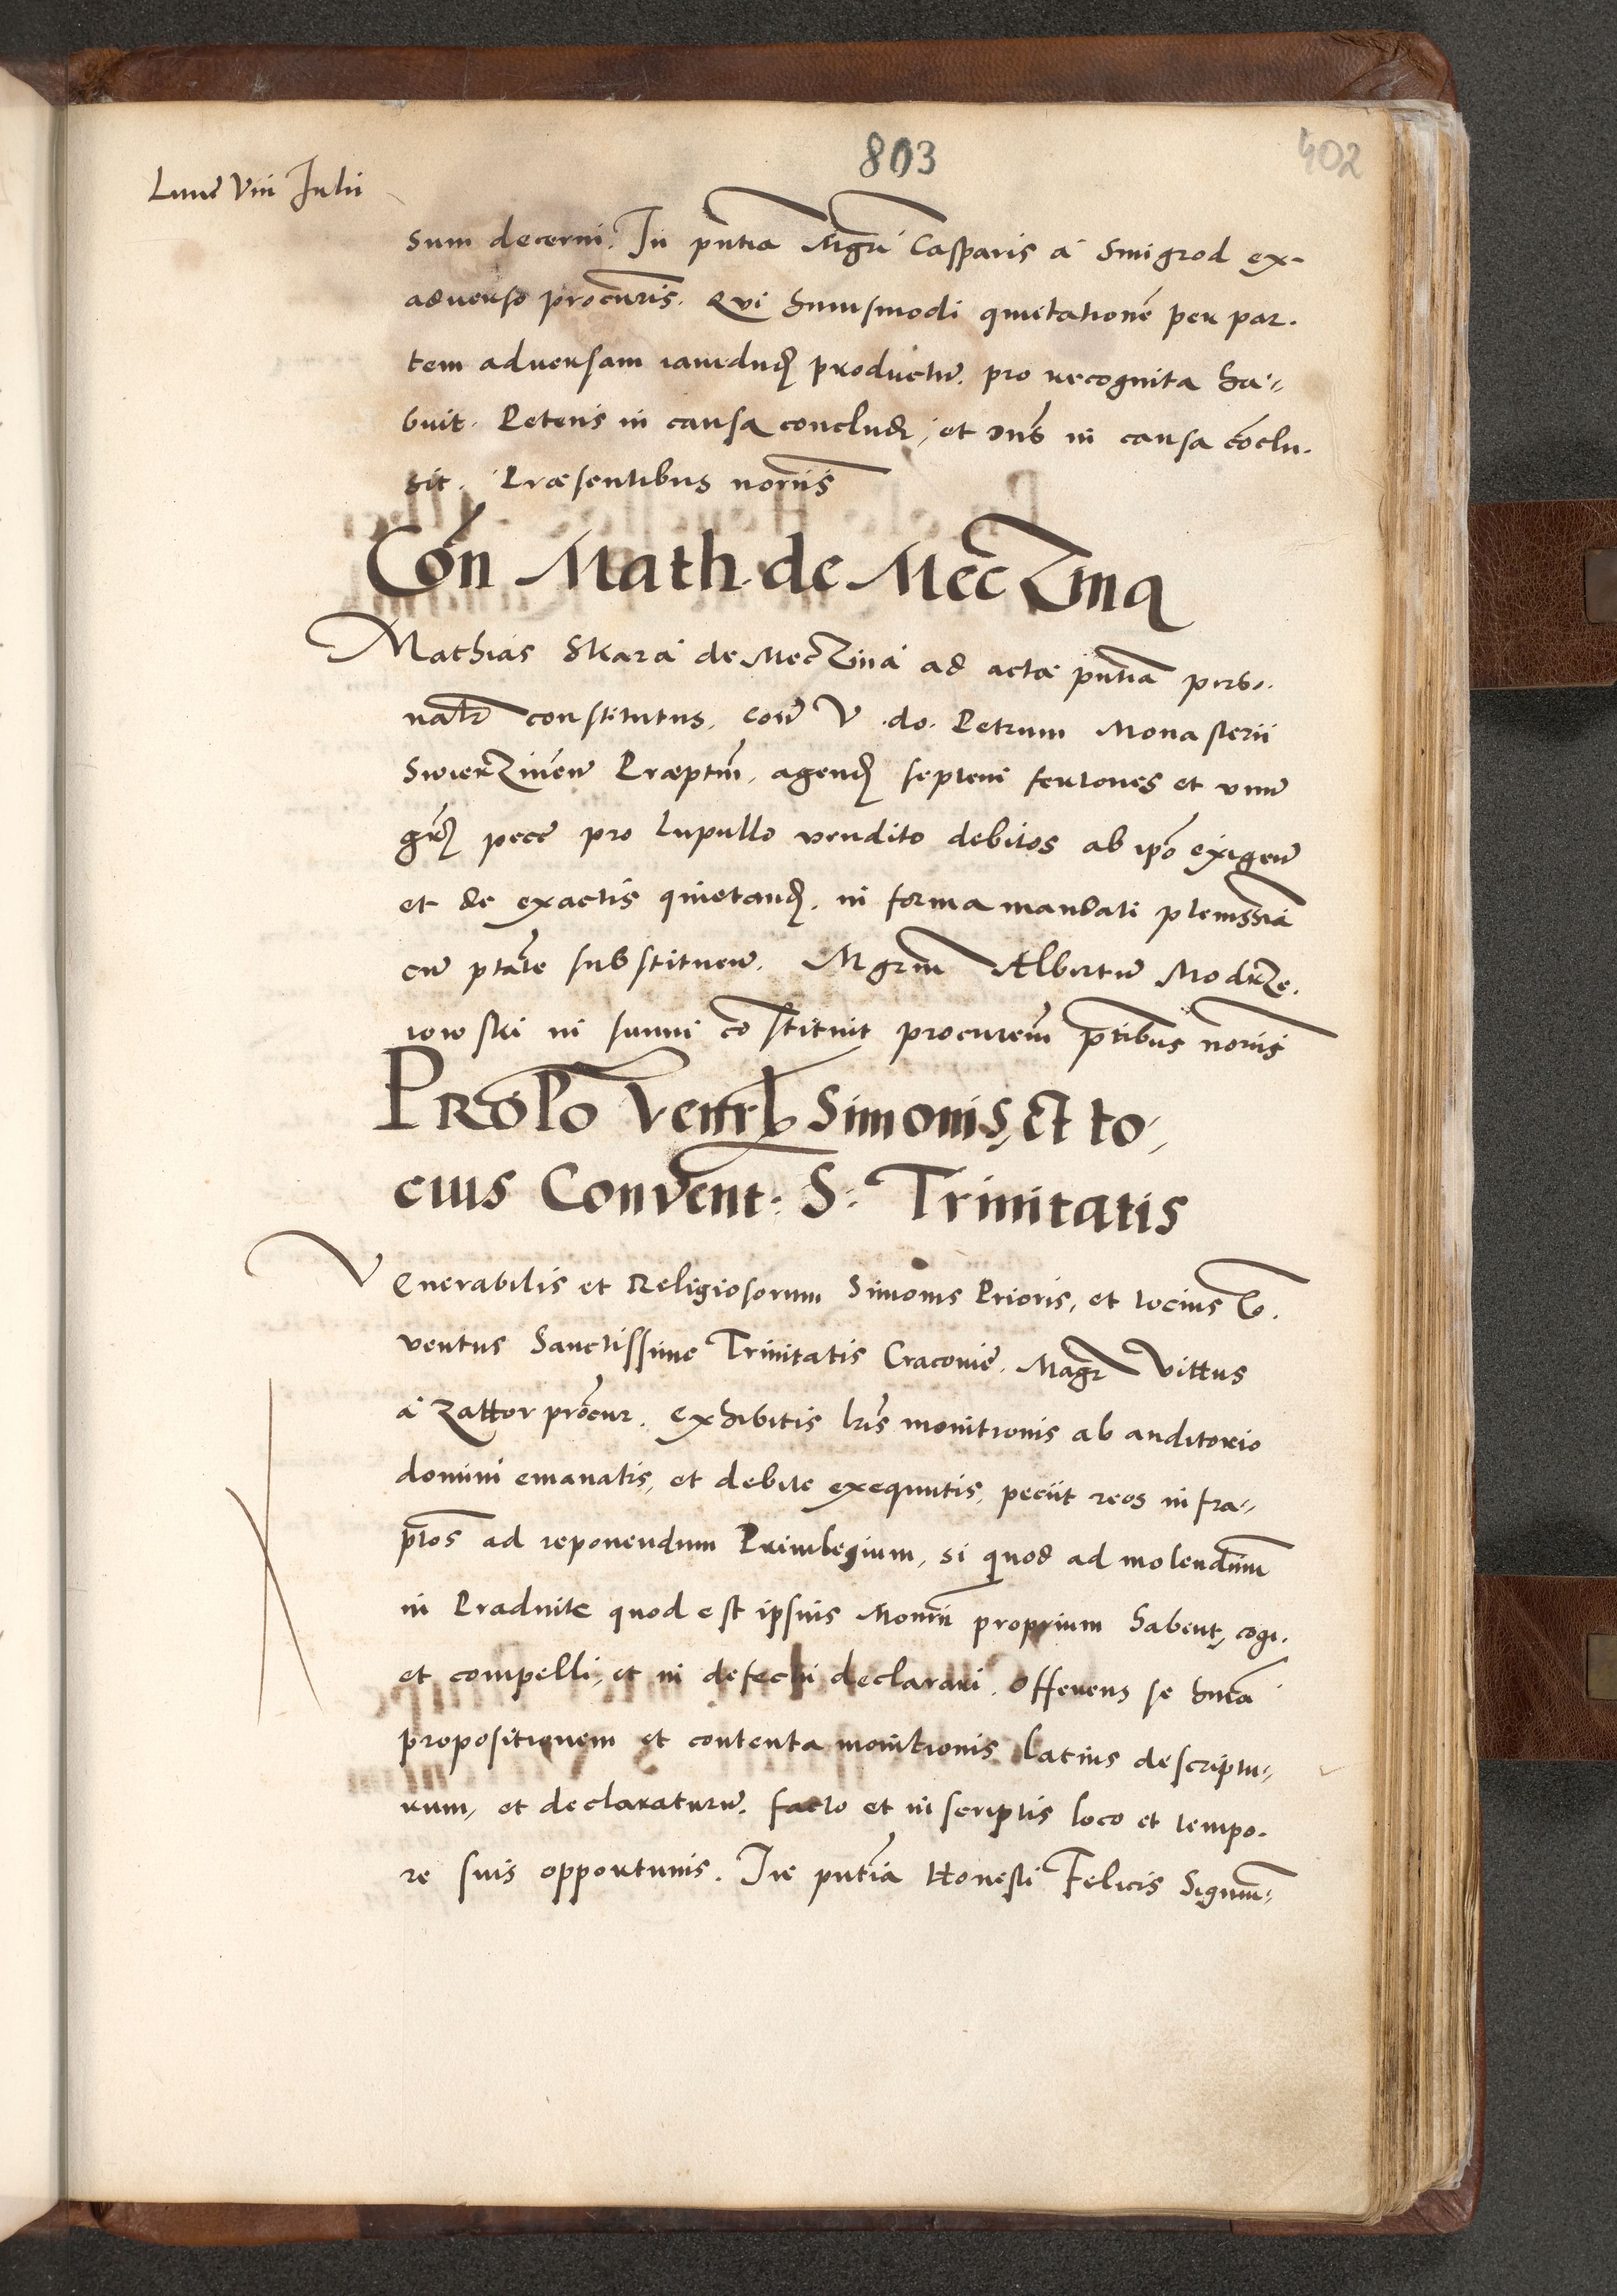 803
402
Lune Viii Julii
sum decerni. In pntia Mgri Casparis a Smigrod ex-
adverso procuris. Qvi huiusmodi quietatione per par-
tem adversam iamdud productu. pro recognita ha-
buit. Petens in causa concludi, et dns in causa coclu-
sit. Præsentibus noriis
Con Math. de Meczina
Mathias Skara de Meczina ad acta pntia perso-
nalr constitutus, cour V. do. Petrum Monasterii
Swierzinen Præptm, agend septem fertones et unu
grd pecc pro lupullo vendito debitos ab ipo exigen
et de exactis quietand. in forma mandati plenissia
cu ptate substituen. Mgrm Albertu Modrze-
iowski in suum constituit procurem ptibus noriis
Propo Venrb Simonis, et to-
cius Convent: S: Trinitatis
Venerabilis et Religiosorum Simonis Prioris, et tocius Co-
ventus Sanctissime Trinitatis Cracovie. Magr Vittus
a Zattor procur. exhibitis lris monitionis ab auditorio
domini emanatis, et debite exequutis, peciit reos infra-
ptos ad reponendum Privilegium, si quod ad molendinum
in Pradnik quod est ipsius Monrii proprium habent, cogi
et compelli, et in defectu declarari. Offerens se hmoi
propositionem et contenta monitionis latius descriptu-
rum, et declaraturu. facto et in scriptis loco et tempo-
re suis opportunis. In pntia Honesti Felicis Sigism-